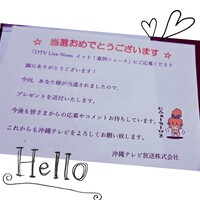 ☆ 当選おめでとうございます ☆
「OTV Live News イット！置例ニュース」にご応募くださり
誠にありがとうございます！
今回、あなた様が当選されましたので、
プレゼントを送付いたします。
今後も皆さまからの応募やコメントお待ちしています。
これからも沖縄テレビをよろしくお願い致します。
沖縄テレビ放送株式会社
Hello